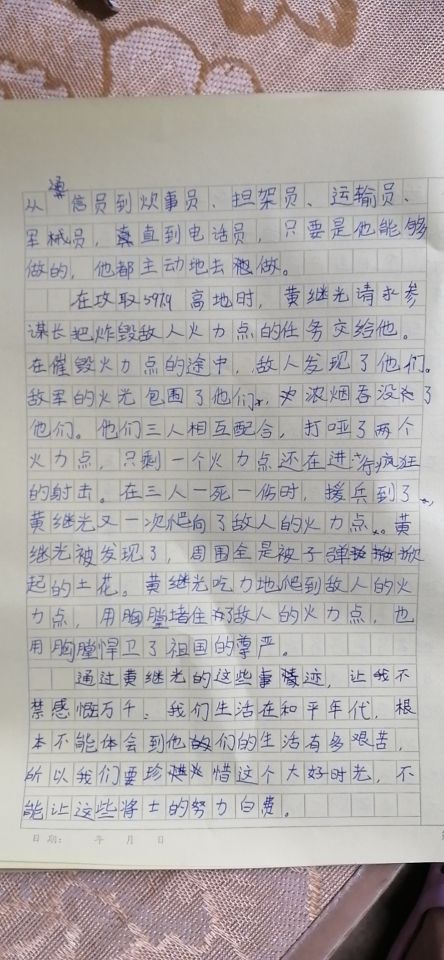 从通信员到炊事员、担架员、运输员、
军械员，直到电话员，只要是他能够
做的，他都主动地去做。
在攻取597.9高地时，黄继光请求参
谋长把炸毁敌人火力点的任务交给他。
在催毁火力点的途中，敌人发现了他们。
敌军的火光包围了他们，浓烟吞没了
他们。他们三人相互配合，打哑了两个
火力点，只剩一个火力点还在进行疯狂
的射击。在三人一死一伤时，援兵到了，
黄继光又一次爬向了敌人的火力点。黄
继光被发现了，周围全是被子弹掀
起的土花。黄继光吃力地爬到敌人的火
力点，用胸膛堵住了敌人的火力点，也
用胸膛悍卫了祖国的尊严。
通过黄继光的这些事迹，让我不
禁感慨万千：我们生活在和平年代，根
本不能体会到他们的生活有多艰苦，
所以我们要珍惜这个大好时光，不
能让这些将士的努力白费。
日期： 年 月 日